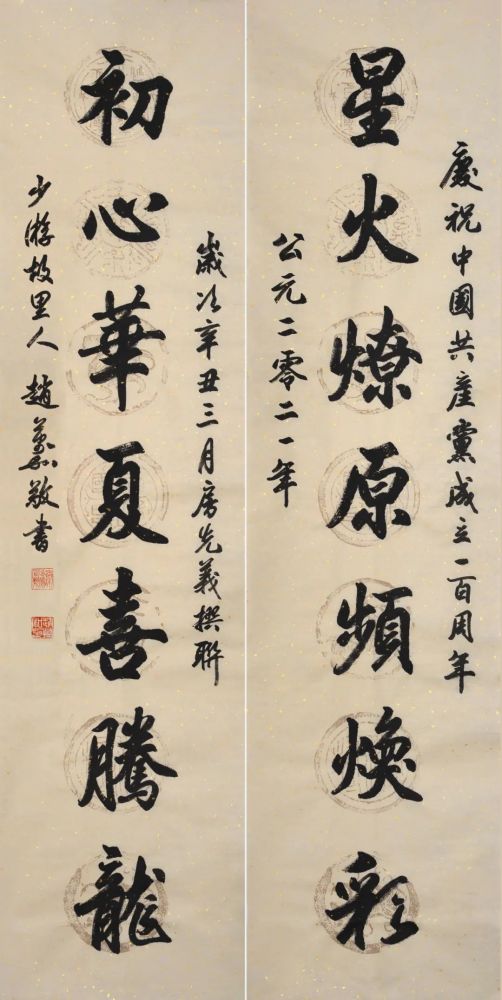 慶祝中國共產黨成立一百周年
星火燎原頻煥彩
公元二零二一年
歲次辛丑三月唐先義撰聯
初心華夏喜騰龍
少游故里人趙義敬書